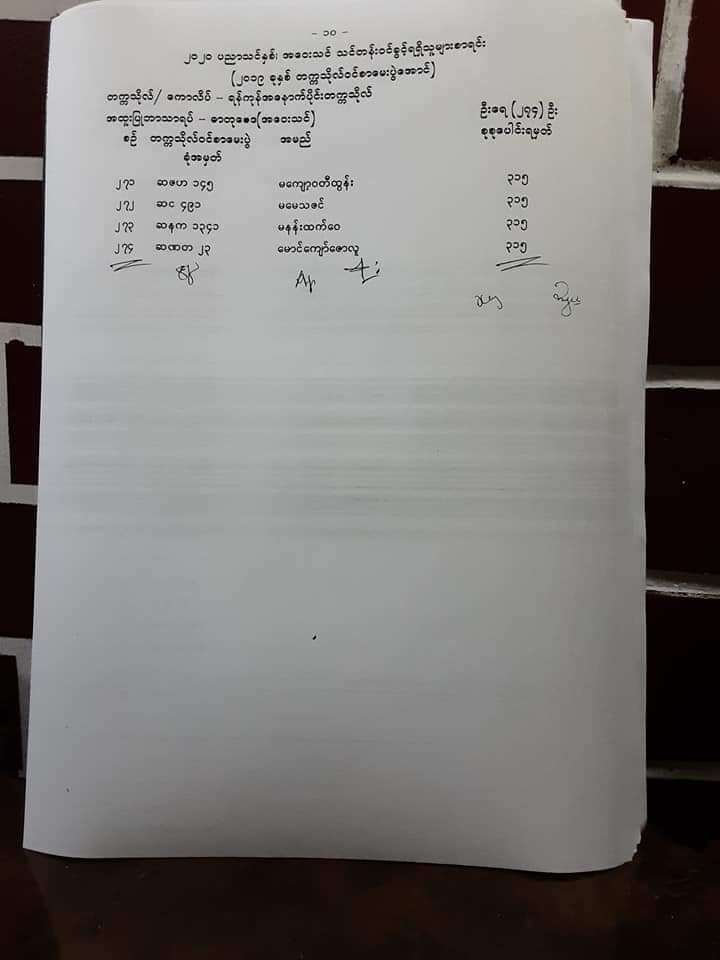 - ၁၀ -
၂၀၂၀ ပညာသင်နှစ်၊ အဝေးသင် သင်တန်းဝင်ခွင့်ရရှိသူများစာရင်း
(၂၀၁၉ ခုနှစ် တက္ကသိုလ်ဝင်စာမေးပွဲအောင်)
တက္ကသိုလ်/ ကောလိပ် - ရန်ကုန်အနောက်ပိုင်းတက္ကသိုလ်
အထူးပြုဘာသာရပ် - ဓာတုဗေဒ(အဝေးသင်) ဦးရေ (၂၇၄) ဦး
စဉ် တက္ကသိုလ်ဝင်စာမေးပွဲ ခုံအမှတ် အမည် စုစုပေါင်းရမှတ်
၂၇၁ ဆဇဟ ၁၄၅ မကျော့ဝတီထွန်း ၃၁၅
၂၇၂ ဆင ၄၉၁ မမေသဇင် ၃၁၅
၂၇၃ ဆနက ၁၃၄၁ မနန်းထက်ဝေ ၃၁၅
၂၇၄ ဆဏတ ၂၃ မောင်ကျော်ဇောလူ ၃၁၅